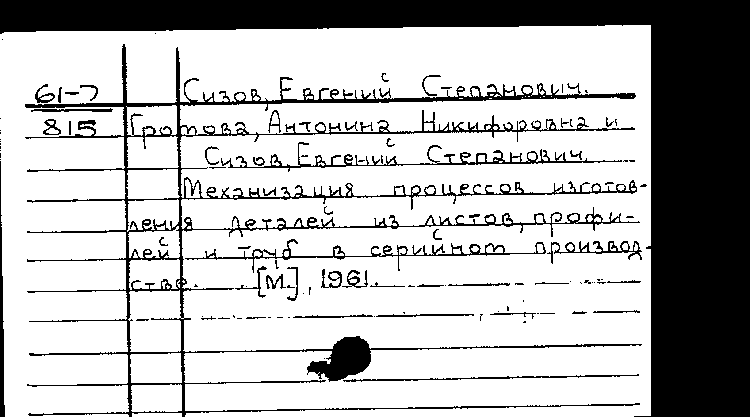 61-7 Сизов, Евгений Степанович.
815 Громова, Антонина Никифоровна и
Сизов, Евгений Степанович.
Механизация процессов изготов-
ления деталей из листов, профи-
лей и труб в серийном производ-
стве. [М.], 1961.